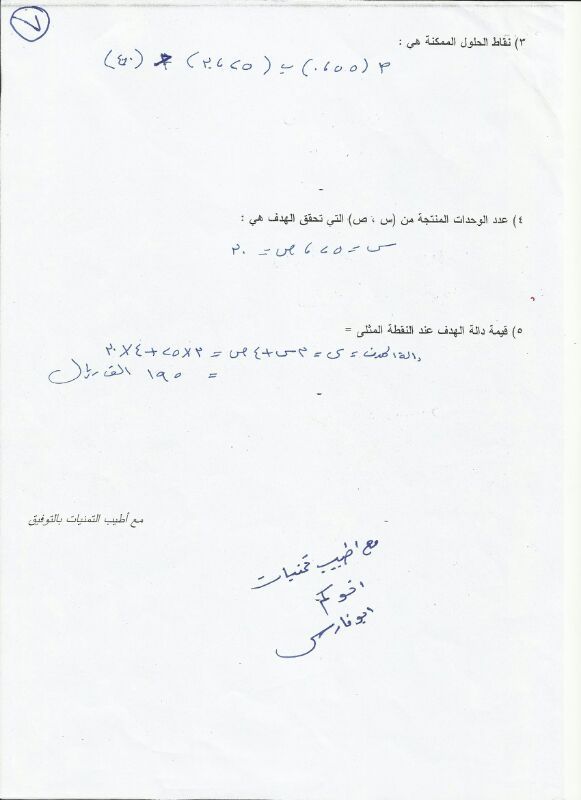 ٧
٣) نقاط الحلول الممكنة هي :
٤) عدد الوحدات المنتجة من (س ، ص) التي تحقق الهدف هي :
س = ٢٥ ، ص = ٣٠
٥) قيمة دالة الهدف عند النقطة المثلى =
دالة الهدف = ى = ٣س + ٤ص = ٣×٢٥ + ٤×٣٠
= ١٩٥ الف ريال
مع أطيب التمنيات بالتوفيق
مع اطيب تمنيات
اخوكم
ابو فارس